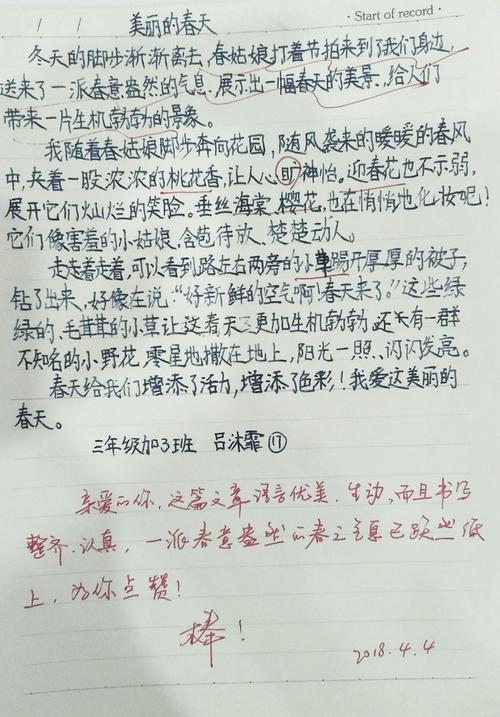 · Start of record ·
美丽的春天
冬天的脚步渐渐离去,春姑娘打着节拍来到了我们身边,
送来了一派春意盎然的气息.展示出一幅春天的美景,给人们
带来一片生机勃勃的景象。
我随着春姑娘脚步奔向花园,随风袭来的暖暖的春风
中,夹着一股浓浓的桃花香,让人心旷神怡。迎春花也不示弱,
展开它们灿烂的笑脸。垂丝海棠、樱花,也在悄悄地化妆呢!
它们像害羞的小姑娘,含苞待放、楚楚动人。
走走着走着,可以看到路左右两旁的小草踢开厚厚的被子,
钻了出来,好像在说:“好新鲜的空气啊!春天来了。”这些绿
绿的、毛茸茸的小草让这春天更加生机勃勃,还有一群
不知名的小野花,零星地撒在地上,阳光一照、闪闪发亮。
春天给我们增添了活力,增添了色彩!我爱这美丽的
春天。
三年级加3班 吕沐霏 ⑰
亲爱的你,这篇文章语言优美、生动,而且书写
整齐、认真,一派春意盎然的春之意已跃然纸
上,为你点赞!
棒!
2018.4.4